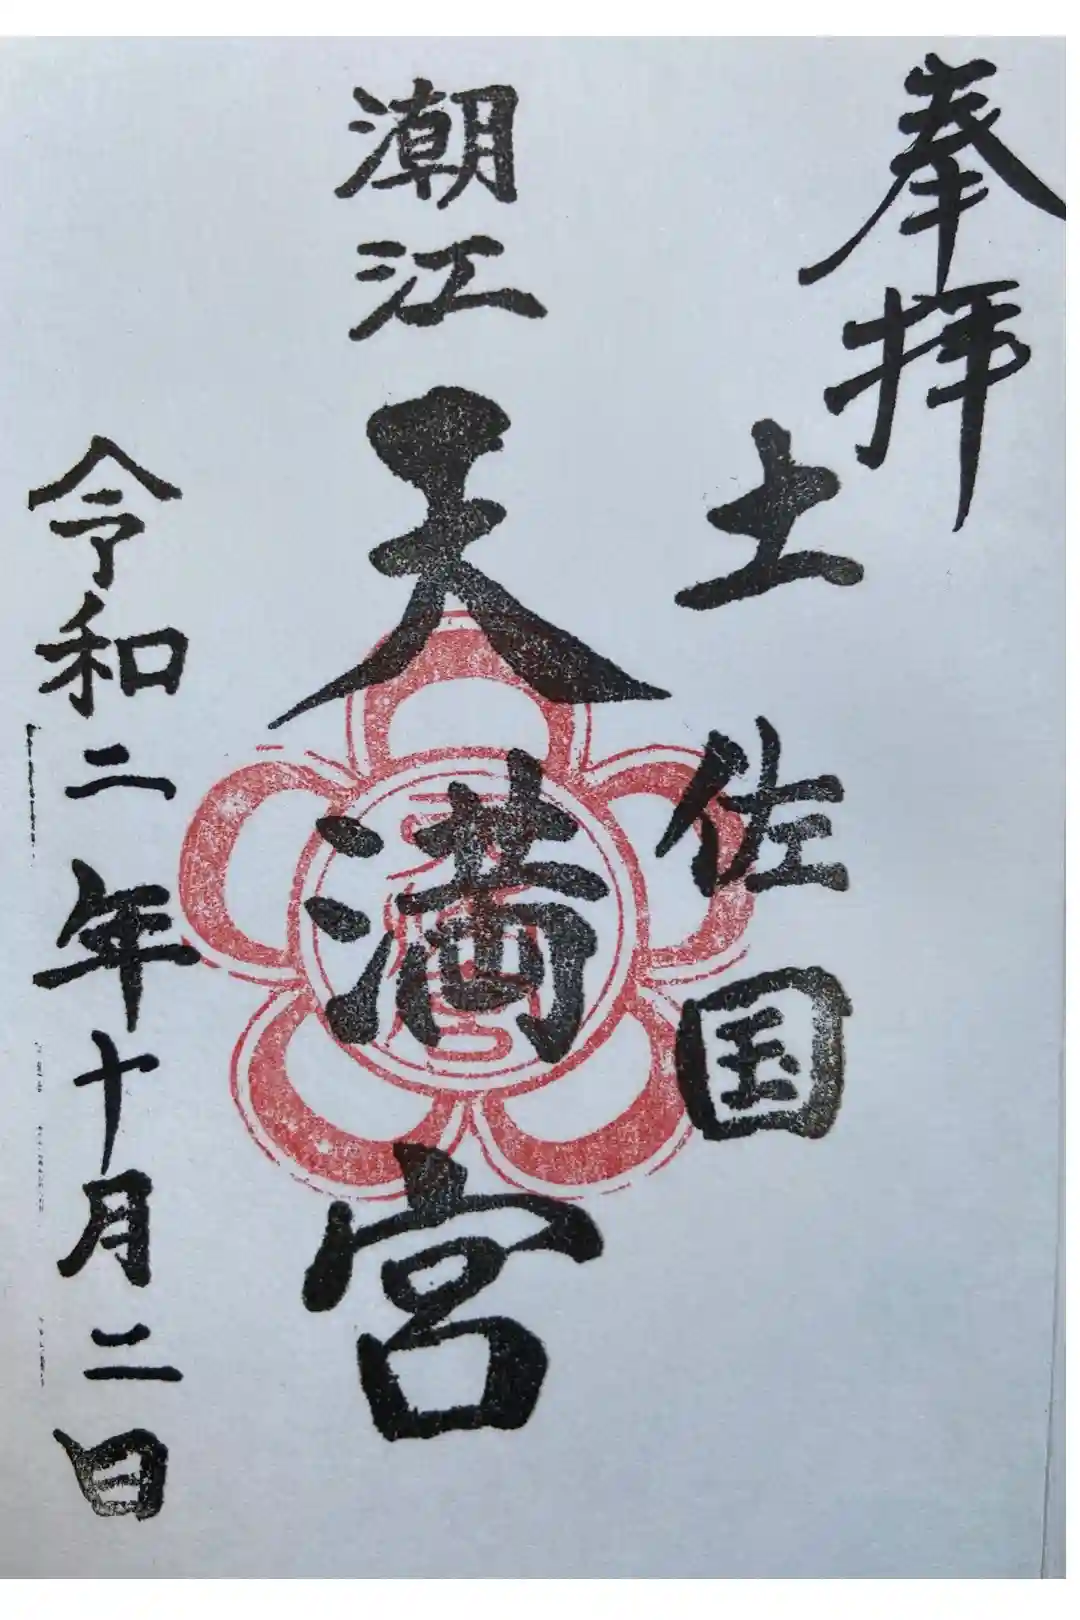 奉拝
土佐国
潮江天満宮
令和二年十月二日